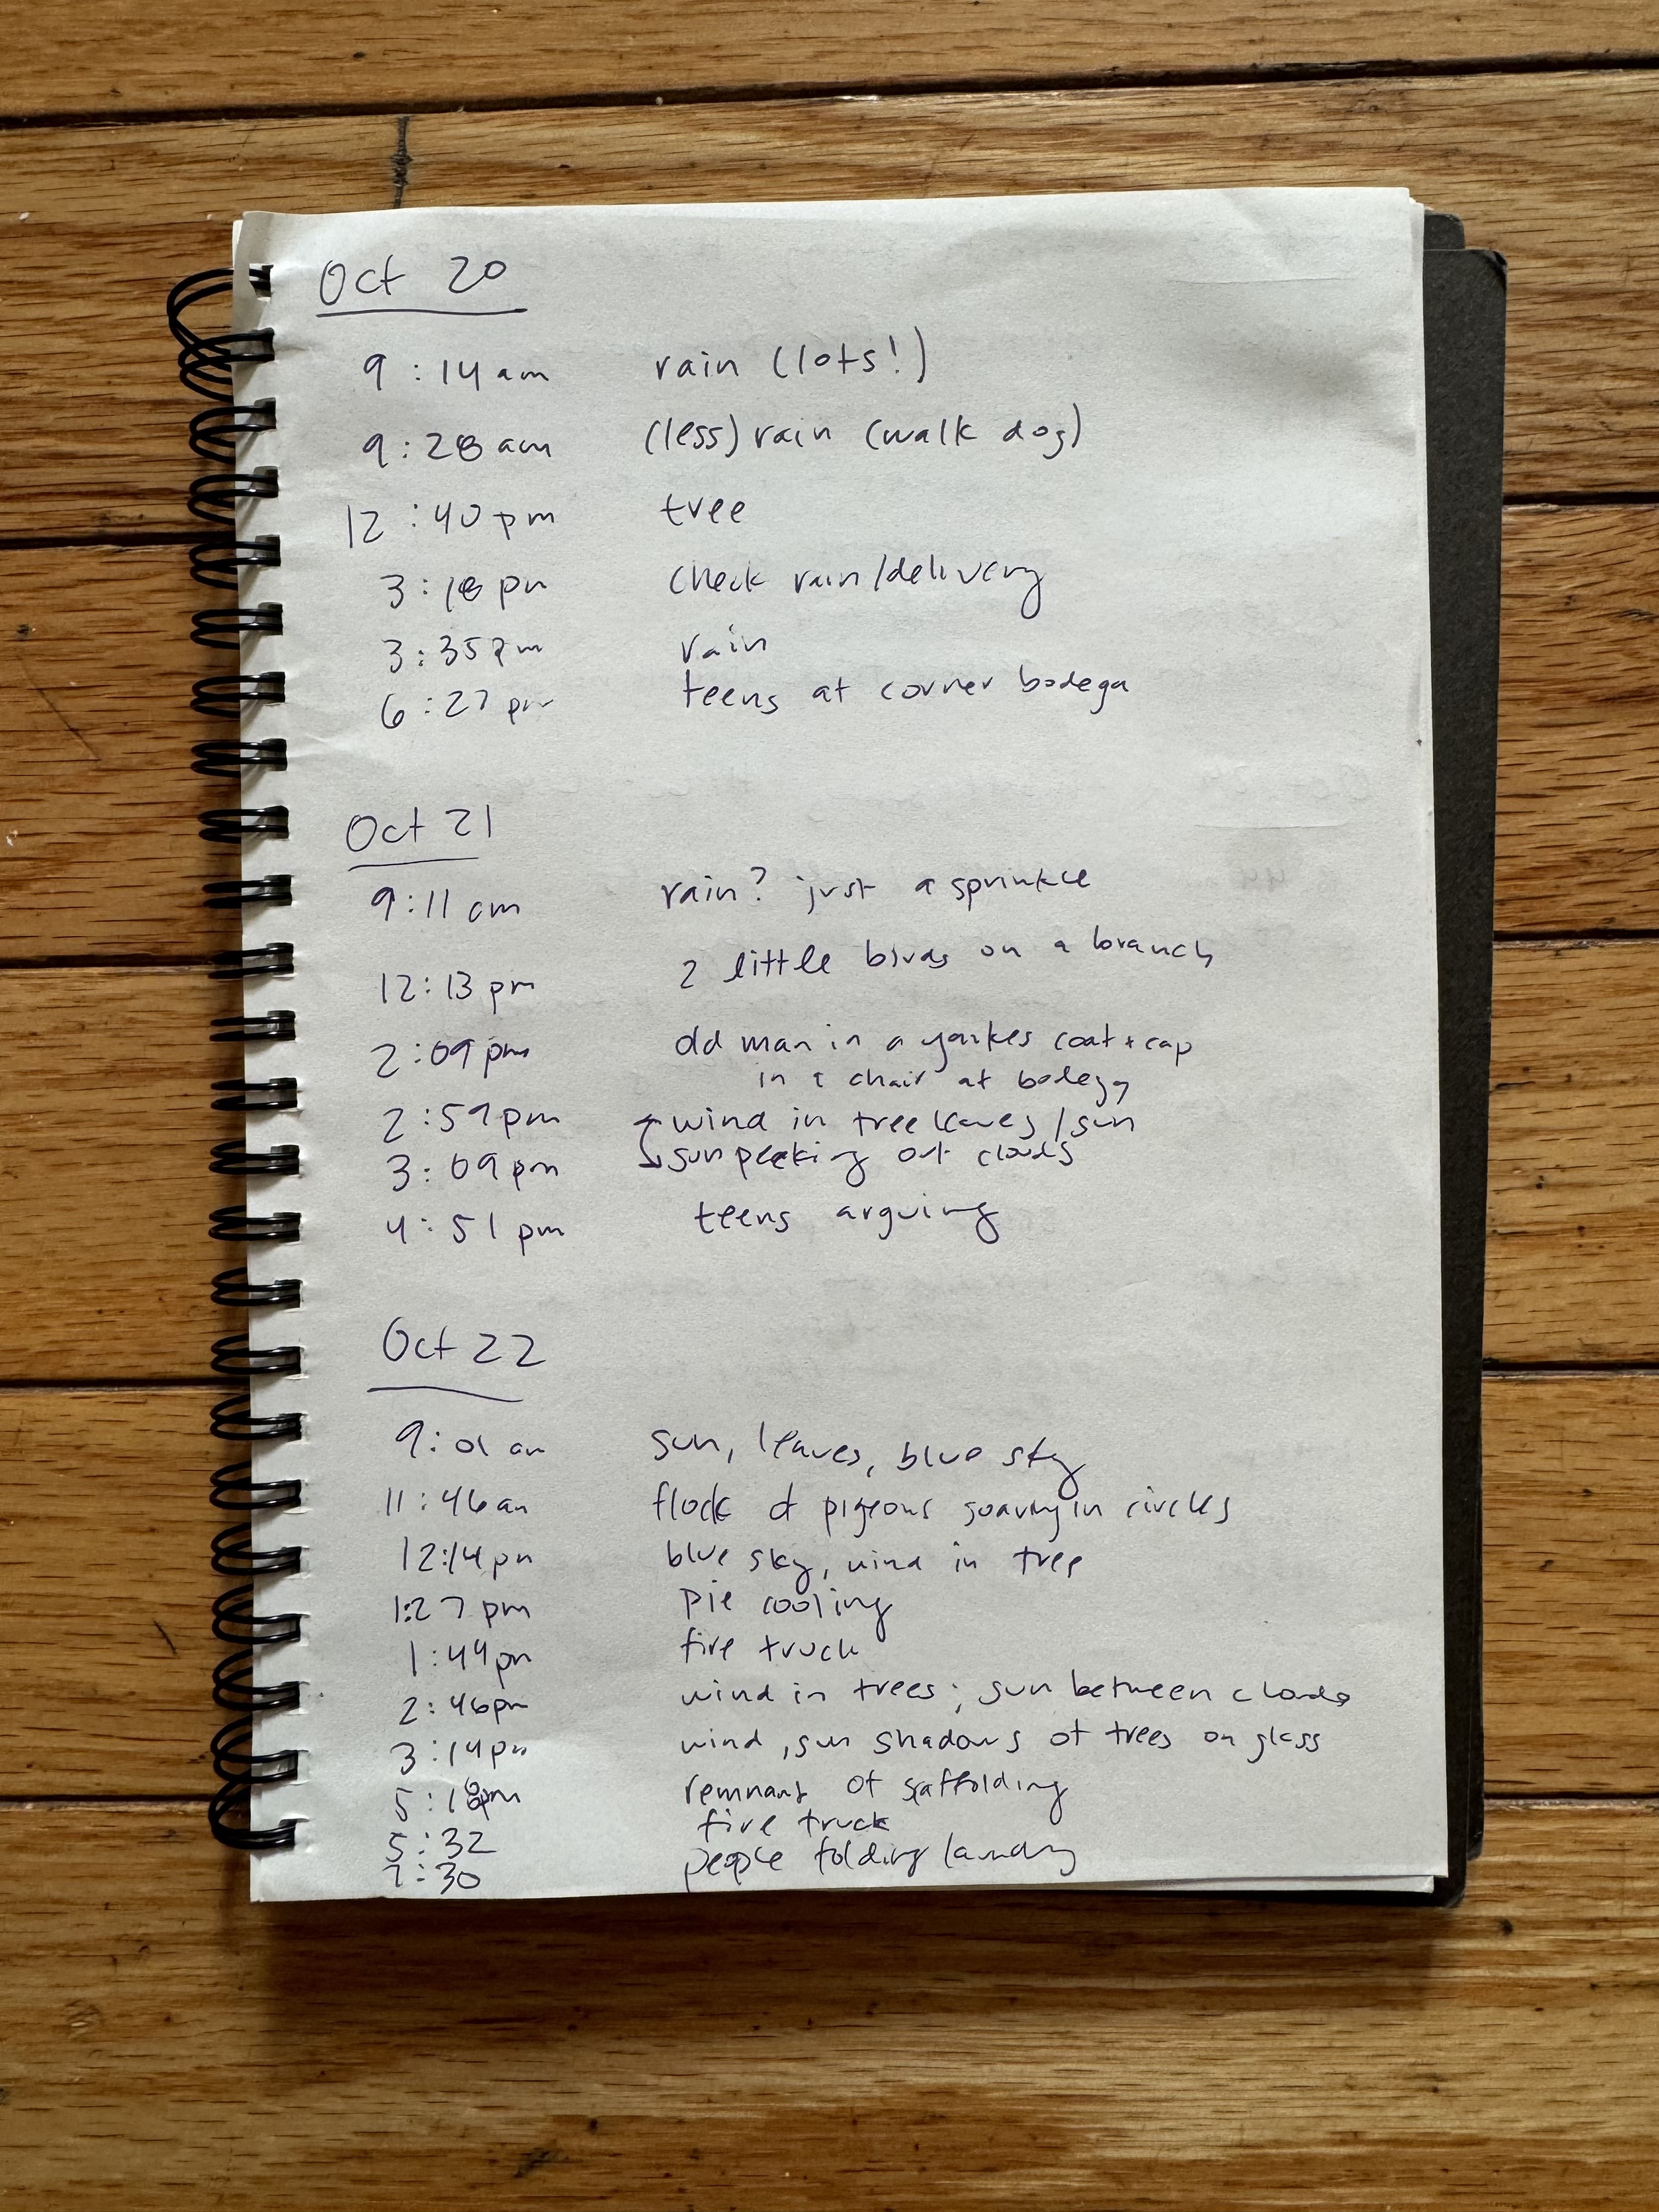 Oct 20
9:14 am rain (lots!)
9:28 am (less) rain (walk dog)
12:40 pm tree
3:18 pm check rain/delivery
3:35 pm rain
6:27 pm teens at corner bodega
Oct 21
9:11 am rain? just a sprinkle
12:13 pm 2 little birds on a branch
2:09 pm old man in a yankes coat + cap
in a chair at bodega
2:59 pm wind in tree leaves / sun
3:09 pm sun peeking out clouds
4:51 pm teens arguing
Oct 22
9:01 am sun, leaves, blue sky
11:46 am flock of pigeons soaring in circles
12:14 pm blue sky, wind in tree
1:27 pm pie cooling
1:49 pm fire truck
2:46 pm wind in trees; sun between clouds
3:14 pm wind, sun shadows of trees on glass
5:18 pm remnant of scaffolding
5:32 fire truck
7:30 people folding laundry